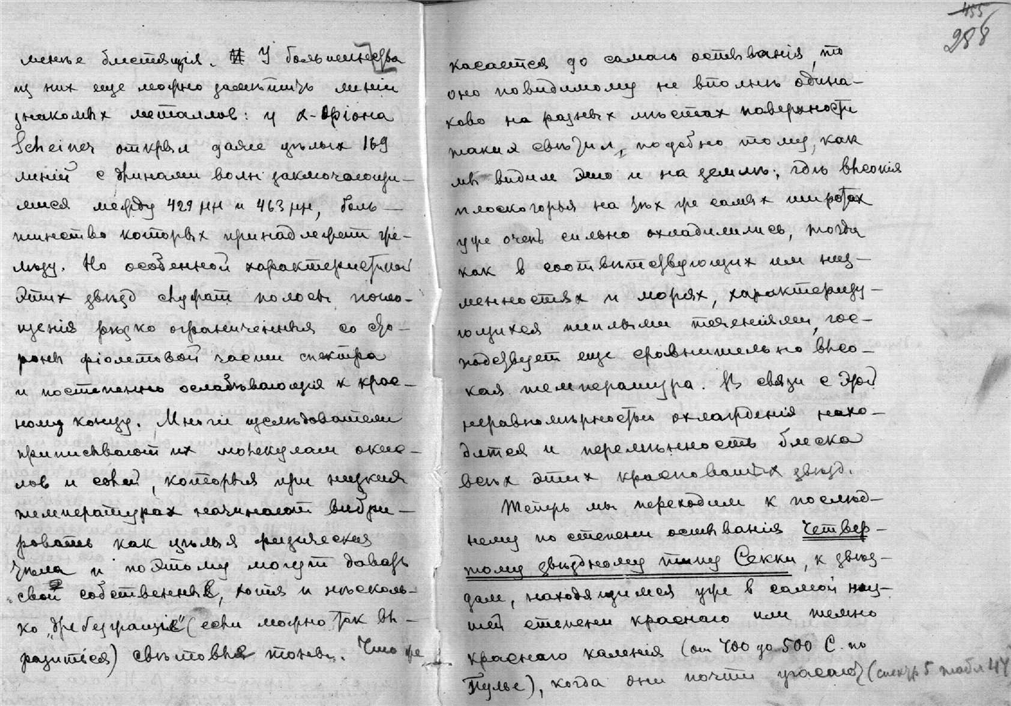 455
288
менѣе блестящія. У большинства
из них еще можно замѣтить линіи
знакомых металлов: у α-Оріона
Scheiner открыл даже цѣлых 169
линій с длинами волн заключающи-
мися между 429 μμ и 463 μμ, боль-
шинство которых принадлежит же-
лѣзу. Но особенной характеристикой
этих звѣзд служат полосы погло-
щенія рѣзко ограниченныя со сто-
роны фіолетовой части спектра
и постепенно ослабѣвающія к крас-
ному концу. Многіе изслѣдователи
приписывают их молекулам окис-
лов и солей, которыя при низких
температурах начинают вибри-
ровать как цѣлыя физическія
тѣла и поэтому могут давать
свои собственные, хотя и нѣсколь-
ко „дребезжащіе" (если можно так вы-
разиться) свѣтовые тоны. Что же
касается до самаго остыванія, то
оно повидимому не вполнѣ одина-
ково на разных мѣстах поверхности
таких свѣтил, подобно тому, как
мы видим это и на землѣ, гдѣ высокія
плоскогорья на тѣх же самых широтах
уже очень сильно охладились, тогда
как в соотвѣтствующих им низ-
менностях и морях, характеризу-
ющихся теплыми теченіями, гос-
подствует еще сравнительно высо-
кая температура. В связи с этой
неравномѣрностью охлажденія нахо-
дится и перемѣнность блеска
всѣх этих красноватых звѣзд.
Теперь мы переходим к послѣд-
нему по степени остыванія четвер-
тому звѣздному типу Секки, к звѣз-
дам, находящимся уже в самой низ-
шей степени краснаго или темно
краснаго каленія (от 400 до 500 С. по
Пулье), когда они почти угасают (спектр 5 табл 47